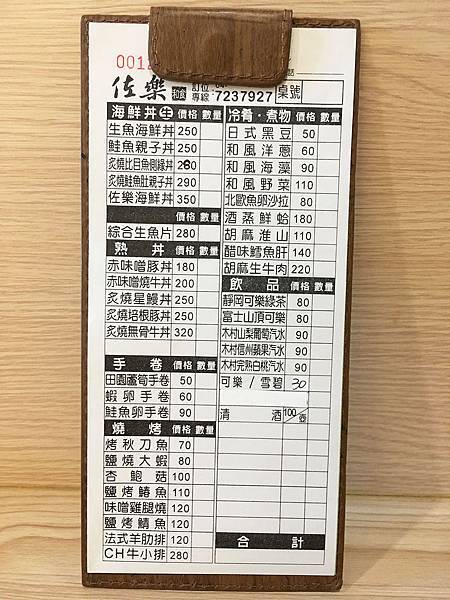 001
佐樂 和食 訂位專線: 7237927 桌號
海鮮丼 生 價格 數量
生魚海鮮丼 250
鮭魚親子丼 250
炙燒比目魚側緣丼 280
炙燒鮭魚肚親子丼 290
佐樂海鮮丼 350
價格 數量
綜合生魚片 280
熟丼 價格 數量
赤味噌豚丼 180
赤味噌燒牛丼 200
炙燒星鰻丼 250
炙燒培根豚丼 250
炙燒無骨牛丼 320
手卷 價格 數量
田園蘆筍手卷 50
蝦卵手卷 60
鮭魚卵手卷 90
燒烤 價格 數量
烤秋刀魚 70
鹽燒大蝦 80
杏鮑菇 100
鹽烤鯖魚 110
味噌雞腿燒 120
鹽烤鯖魚 120
法式羊肋排 120
CH牛小排 280
冷肴·煮物 價格 數量
日式黑豆 50
和風洋蔥 60
和風海藻 90
和風野菜 110
北歐魚卵沙拉 80
酒蒸鮮蛤 180
胡麻淮山 110
醋味鱈魚肝 140
胡麻生牛肉 220
飲品 價格 數量
靜岡可樂綠茶 80
富士山頂可樂 80
木村山梨葡萄汽水 90
木村信州蘋果汽水 90
木村完熟白桃汽水 90
可樂/雪碧 30
清酒 100/壺
合計